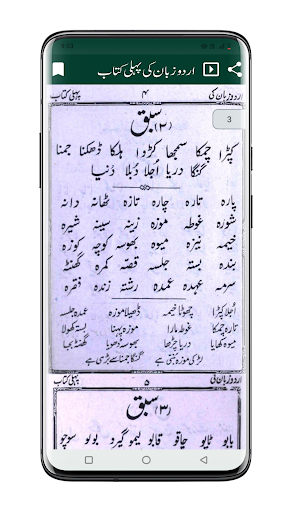 اردو زبان کی پہلی کتاب
اردو زبان کی ۴ پہلی کتاب
سبق
(۲)
3
کپڑا چمکا سمجھا کڑوا ہلکا ڈھکنا جمنا
گنگا دریا اُجلا دُبلا دُنیا
پارہ تارہ چارہ تازہ تھانہ دانہ
شورہ غوطہ موزہ زینہ سینہ شیرہ
خیمہ نیزہ میوہ بھوسہ کوچہ کوزہ
بندہ بستہ جلسہ قصّہ کمرہ گھنٹہ
سرمہ عہدہ عمدہ رشتہ زندہ فقرہ
اُجلا کپڑا چھوٹا خیمہ ڈھیلا موزہ عمدہ جلسہ
تارہ چمکا غوطہ مارا موزہ پہنا بستہ کھولا
میوہ کھایا دریا چڑھا بھوسہ ڈھویا گھنٹہ بجا
لڑکی موزہ بُنتی ہے گنگا جمنا سے بڑی ہے
اردو زبان کی ۵ پہلی کتاب
سبق
(۳)
بابو ٹاپو چاقو قابو لیمو گیرو بولو سوچو